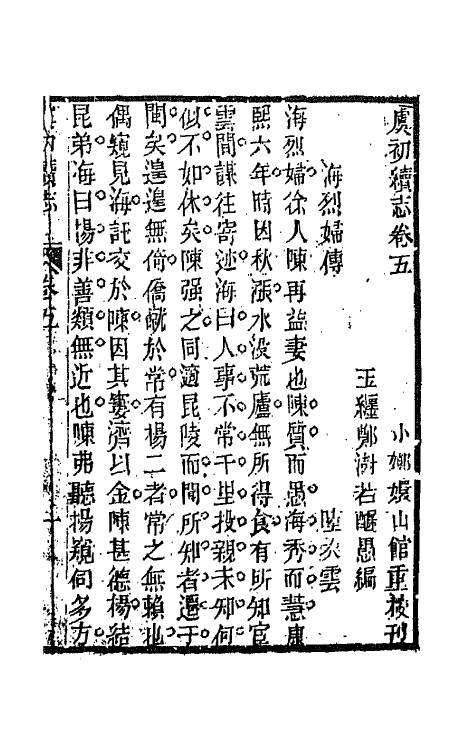 虞初續志卷五
小嫏嬛山館重校刊
玉纏鄭澍若醒愚編
海烈婦傳
陸次雲
海烈婦徐人陳再益妻也陳質而愚海秀而慧康
熙六年時因秋漲水没荒廬無所得食有所知官
雲間謀往寄迹海曰人事不常千里投親未知何
似不如休矣陳强之同適昆陵而聞所知者遷于
閩矣遑遑無倚僑㑃於常有楊二者常之無賴也
偶窺見海託交於陳因其窶濟以金陳甚德楊結
昆弟海曰楊非善類無近也陳弗聽楊窺伺多方
初續志
卷五